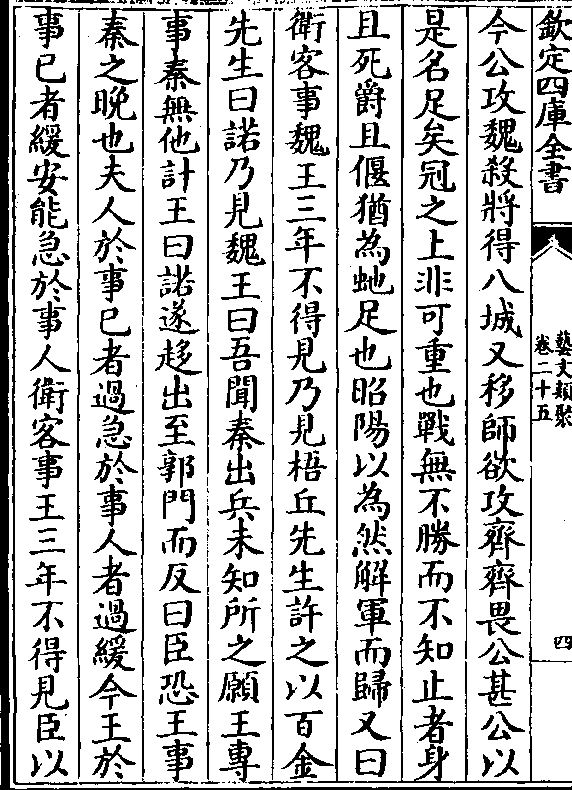 欽定四庫全書
藝文類聚
卷二十五
四
今公攻魏殺將得八城又移師欲攻齊齊畏公甚公以
是名足矣冠之上非可重也戰無不勝而不知止者身
且死爵且偃猶為虵足也昭陽以為然解軍而歸又曰
衛客事魏王三年不得見乃見梧丘先生許之以百金
先生曰諾乃見魏王曰吾聞秦出兵未知所之願王專
事秦無他計王曰諾遂趍出至郭門而反曰臣恐王事
秦之晚也夫人於事已者過急於事人者過緩今王於
事已者緩安能急於事人衛客事王三年不得見臣以